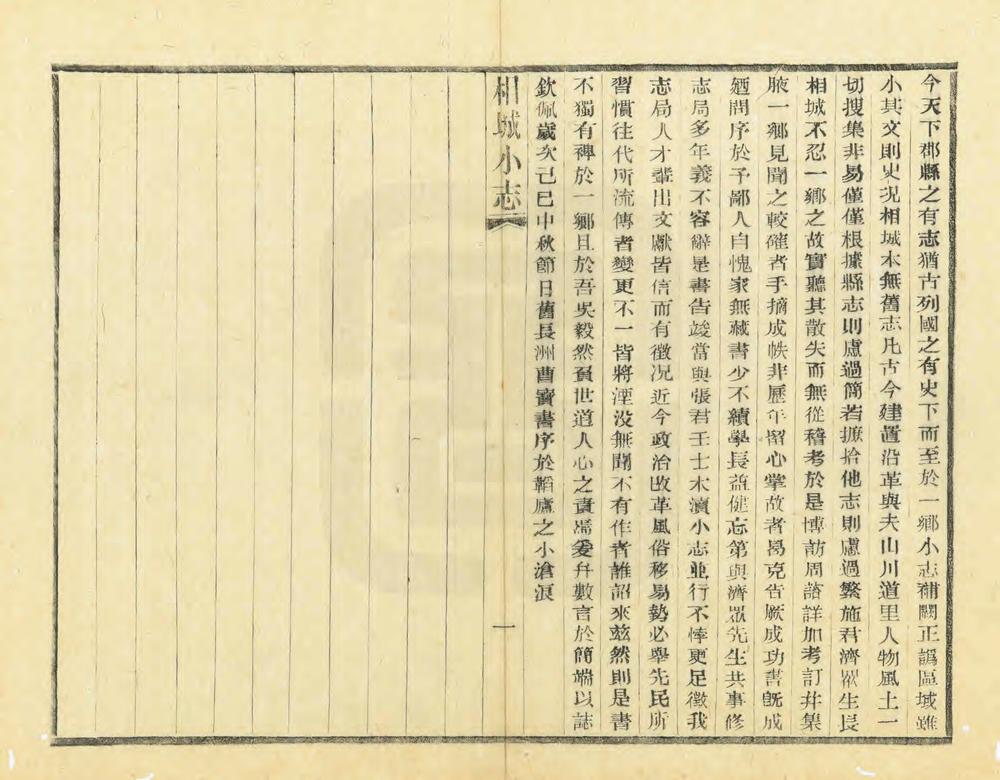 今天下郡縣之有志猶古列國之有史下而至於一鄉小志補闕正譌區域雖
小其文則史况相城本無舊志凡古今建置沿革與夫山川道里人物風土一
切搜集非易僅僅根據縣志則慮過簡若摭拾他志則慮過繁施君濟眾生長
相城不忍一鄉之故實聽其散失而無從稽考於是博訪周諮詳加考訂并集
腋一鄉見聞之較確者手摘成帙非歷年留心掌故者曷克告厥成功書旣成
廼問序於予鄙人自愧家無藏書少不績學長益健忘第與濟眾先生共事修
志局多年義不容辭是書告竣當與張君壬士木瀆小志並行不悖更足徵我
志局人才輩出文獻皆信而有徵况近今政治改革風俗移易勢必舉先民所
習慣往代所流傳者變更不一皆將湮没無聞不有作者誰詔來茲然則是書
不獨有裨於一鄉且於吾吳毅然負世道人心之責焉爰弁數言於簡端以誌
欽佩歲次己巳中秋節日舊長洲曹寶書序於韜廬之小滄浪
相城小志
一